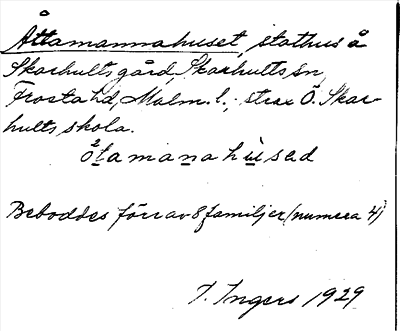 Åttamannahuset, stathus å
Skarhults gård, Skarhults sn,
Frosta hd, Malm. l.; strax Ö. Skar-
hults skola.
åtamanahùsad
Beboddes förr av 8 familjer (numera 4)
I. Ingers 1929